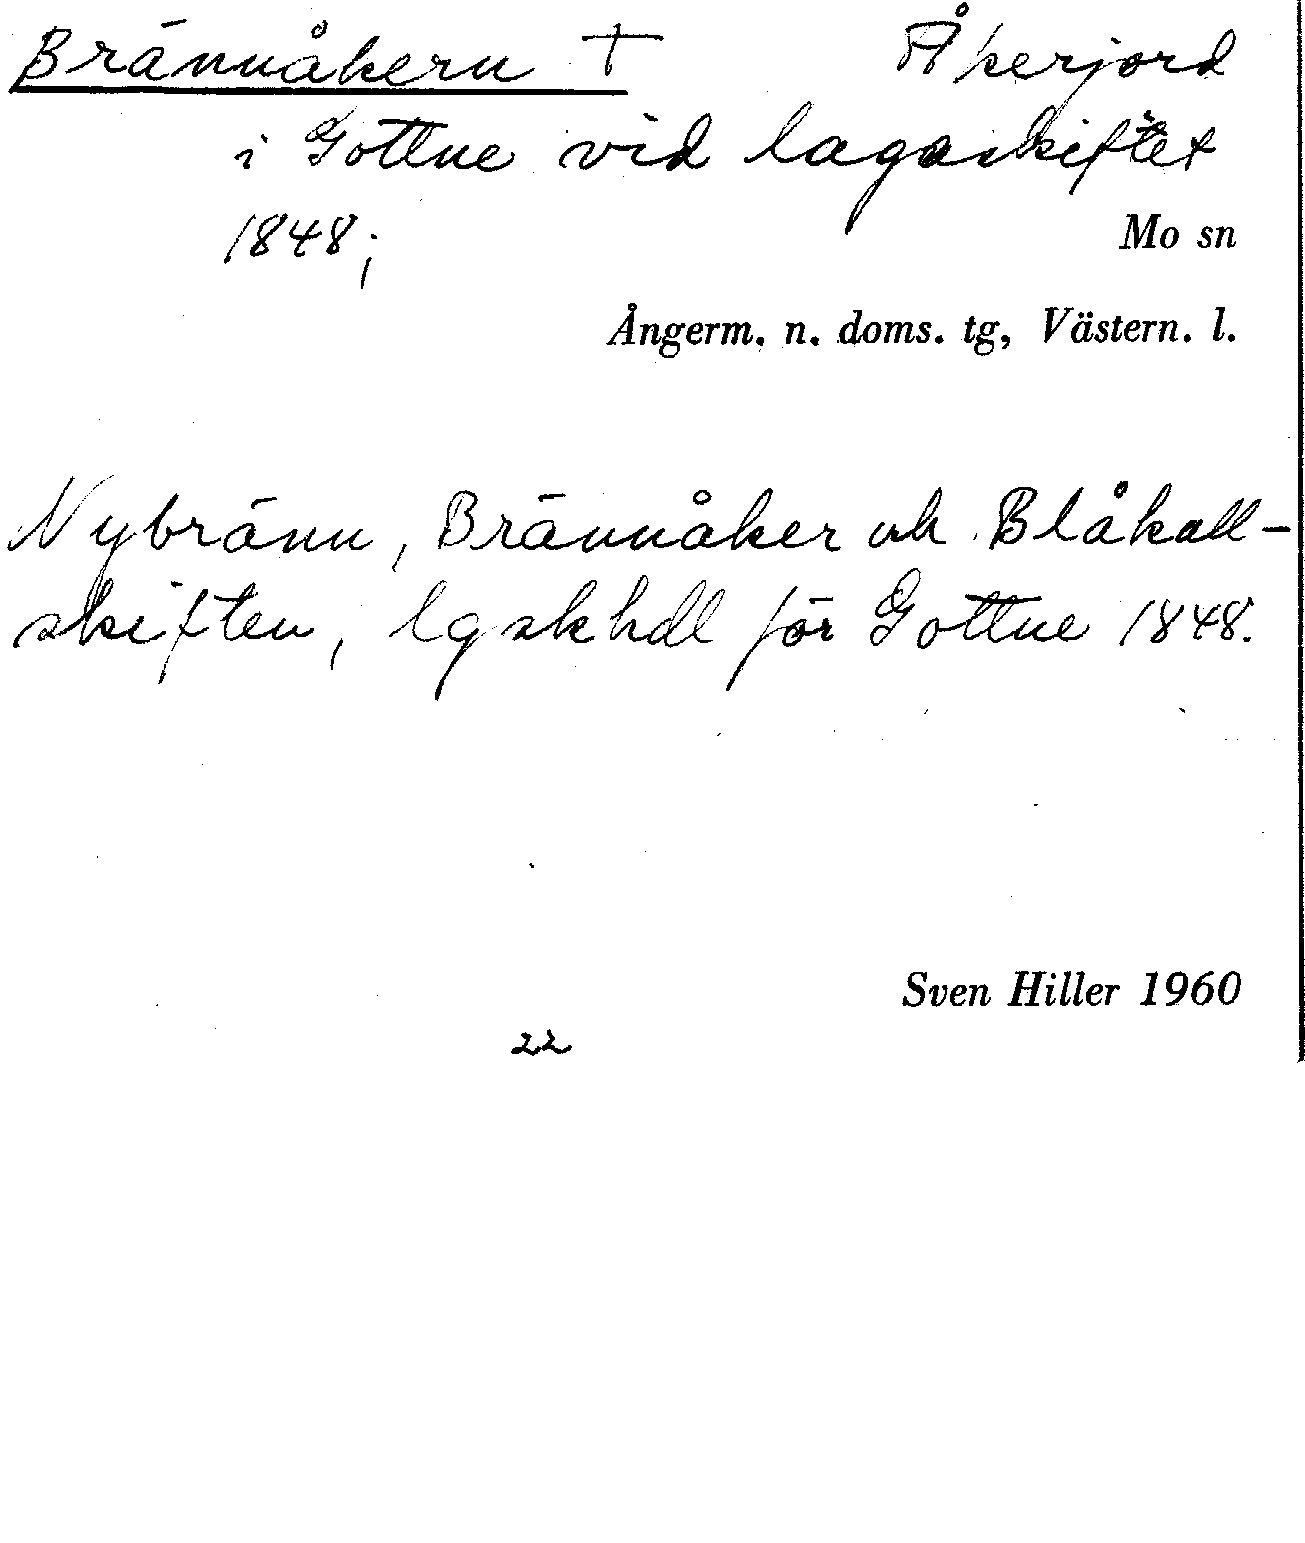 Brännåkern † Åkerjord
i Gottne vid lagaskiftet
1848; Mo sn
Ångerm. n. doms. tg, Västern. l.
Nybränn, Brännåker och Blåkall-
skiften, lgskhdl för Gottne 1848.
Sven Hiller 1960
22